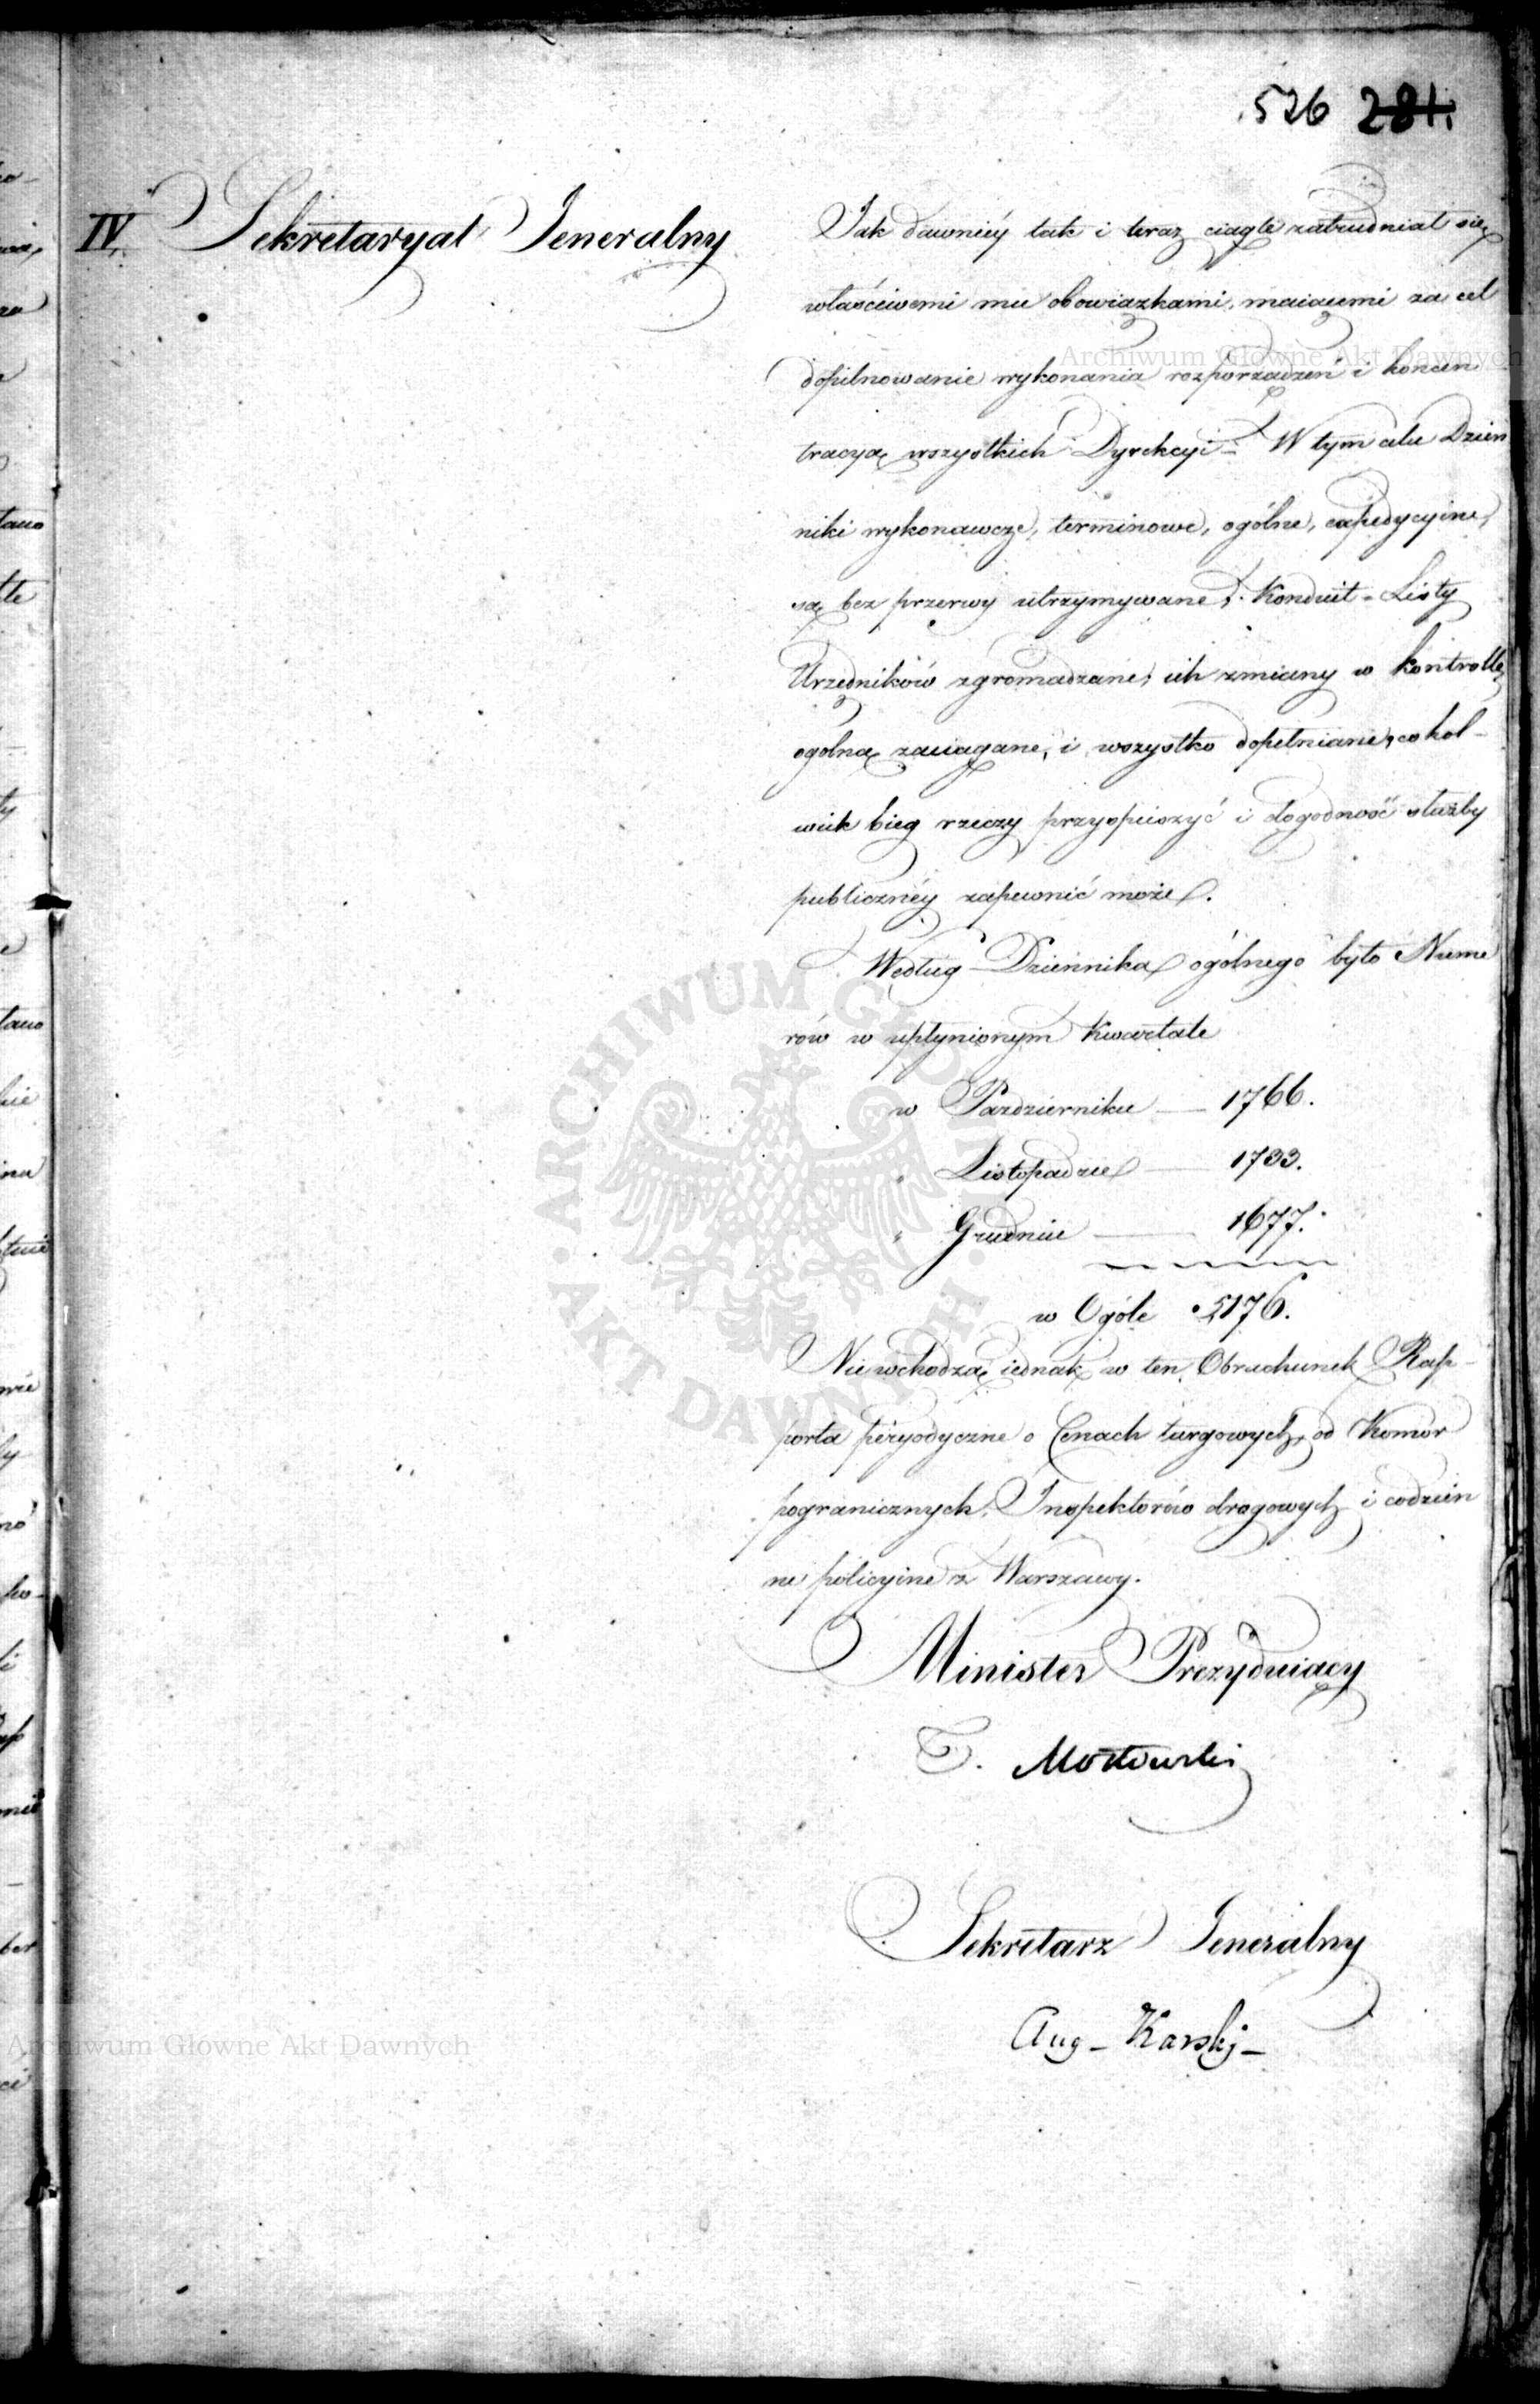 526 281.
IV. Sekretaryat Jeneralny
Jak dawniéy tak i teraz ciągle zatrudniał się
właściwemi mu obowiązkami, maiącemi za cel
Archiwum Główne Akt Dawnych
dopilnowanie wykonania rozporządzeń i koncen
tracyą wszystkich Dyrekcyi - W tym celu Dzien
niki wykonawcze, terminowe, ogólne, expedycyine,
są bez przerwy utrzymywane; Konduit-Listy
Urzędników zgromadzane; ich zmiany w kontrollę
ogólną zaciągane, i wszystko dopełniane, cokol-
wiek bieg rzeczy przyspieszyć i dogodność służby
publicznéy zapewnić może.
Według Dziennika ogólnego było Nume
rów w upłynionym Kwartale
w Pazdzierniku — 1766.
" Listopadzie — 1733.
" Grudniu — 1677.
w Ogóle 5176.
Nie wchodzą iednak w ten Obrachunek Rap-
porta peryodyczne o Cenach targowych, od Komor
pogranicznych, Inspektorów drogowych i codzien
ne policyine z Warszawy.
Minister Prezyduiący
T. Mostowski
Sekretarz Jeneralny
Aug - Karskj -
Archiwum Główne Akt Dawnych
ARCHIWUM GŁÓWNE · AKT DAWNYCH ·